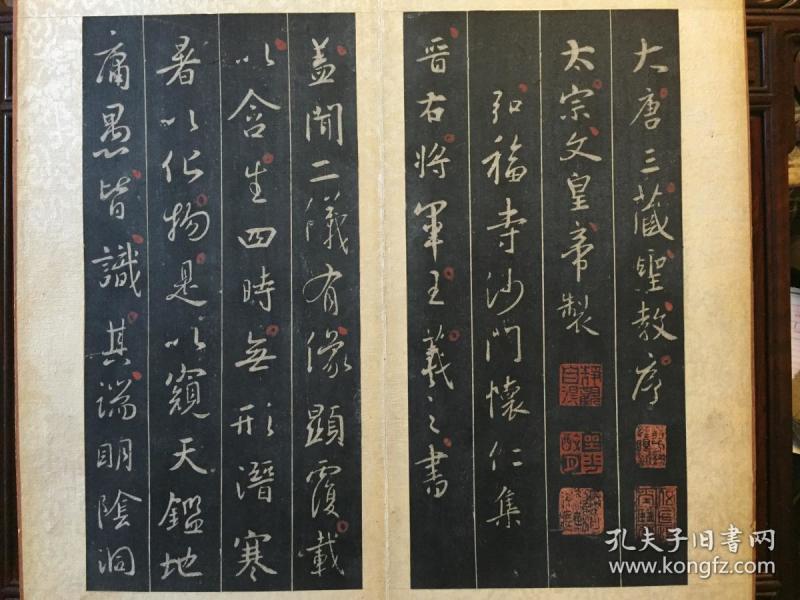 大唐三藏聖教序
太宗文皇帝製
弘福寺沙門懷仁集
晉右將軍王羲之書
蓋聞二儀有像顯覆載
以含生四時無形潛寒
暑以化物是以窺天鑑地
庸愚皆識其端明陰洞
靜觀自得
孔夫子旧書网
www.kongfz.com